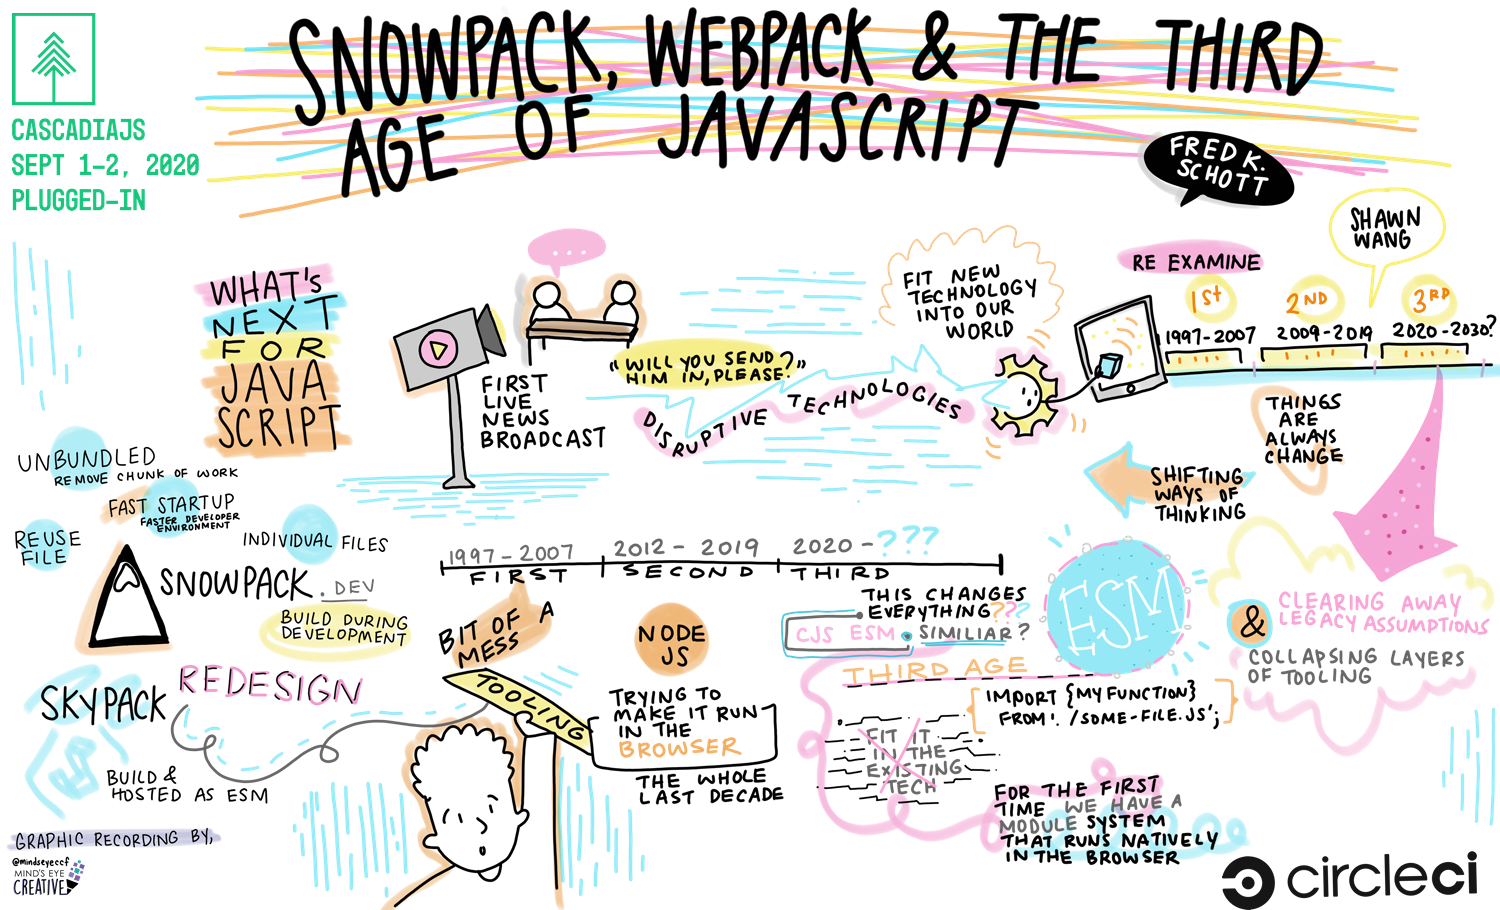 SNOWPACK, WEBPACK & THE THIRD
AGE OF JAVASCRIPT
FRED K.
SCHOTT
CASCADIAJS
SEPT 1-2, 2020
PLUGGED-IN
WHAT'S
NEXT
FOR
JAVA
SCRIPT
...
FIRST
LIVE
NEWS
BROADCAST
"WILL YOU SEND
HIM IN, PLEASE?"
DISRUPTIVE TECHNOLOGIES
FIT NEW
TECHNOLOGY
INTO OUR
WORLD
RE EXAMINE
SHAWN
WANG
1St 2ND 3RD
1997-2007 2009-2019 2020-2030?
THINGS
ARE
ALWAYS
CHANGE
SHIFTING
WAYS OF
THINKING
UNBUNDLED
REMOVE CHUNK OF WORK
FAST STARTUP
FASTER DEVELOPER
ENVIRONMENT
REUSE
FILE
INDIVIDUAL FILES
SNOWPACK.DEV
BUILD DURING
DEVELOPMENT
SKYPACK
REDESIGN
BUILD &
HOSTED AS ESM
1997-2007 2012-2019 2020-???
FIRST SECOND THIRD
BIT OF A
MESS
TOOLING
NODE
JS
TRYING TO
MAKE IT RUN
IN THE
BROWSER
THE WHOLE
LAST DECADE
THIS CHANGES
EVERYTHING???
CJS ESM. SIMILIAR?
THIRD AGE
ESM
IMPORT {MYFUNCTION}
FROM './SOME-FILE.JS';
FIT IT
IN THE
EXISTING
TECH
FOR THE FIRST
TIME WE HAVE A
MODULE SYSTEM
THAT RUNS NATIVELY
IN THE BROWSER
&
CLEARING AWAY
LEGACY ASSUMPTIONS
COLLAPSING LAYERS
OF TOOLING
GRAPHIC RECORDING BY,
@mindseyeccf
MIND'S EYE
CREATIVE
circleci